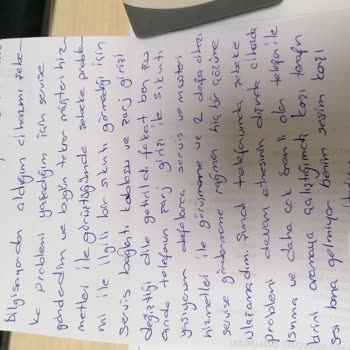 bilgisayardan aldığım cihazımı şebe-
ke problemi yaşadığım için servise
gönderdim ve bugün tekrar müşteri hiz-
metleri ile görüştüğümde şebeke proble-
mi ile ilgili bir sıkıntı görmediği için
servis bağlantı kablosu ve şarj girişi
değiştiği dile getirildi fakat ben şu
anda telefonun şarj girişi ile sıkıntı
yaşıyorum defalarca servis ve müşteri
hizmetleri ile görüşmeme ve 2 defa cihazı
servise göndermeme rağmen hiç bir çözüme
ulaşamadım. Şimdi telefonumda şebeke
problemi devam etmesinin dışında cihazda
Isınma ve daha çok önemli olan telefon ile
birini aramaya çalıştığımda karşı tarafın
sesi bana gelmiyor benim sesim karşı